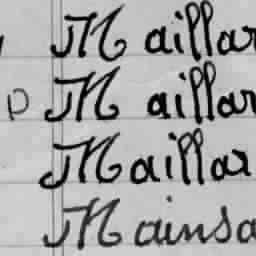 M aillar
p M aillar
Maillar
Mainsa